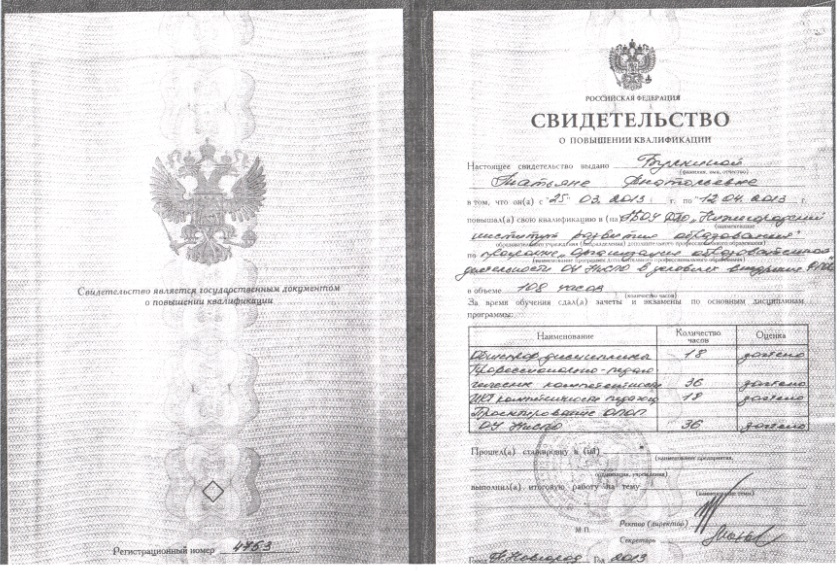 Свидетельство является государственным документом
о повышении квалификации
Регистрационный номер 4763
РОССИЙСКАЯ ФЕДЕРАЦИЯ
СВИДЕТЕЛЬСТВО
О ПОВЫШЕНИИ КВАЛИФИКАЦИИ
Настоящее свидетельство выдано
(фамилия, имя, отчество)
Татьяне Анатольевне
в том, что он(а) с "25" 03. 2013 г. по "12" 04. 2013 г.
повышал(а) свою квалификацию в (на) ГБОУ ДПО "Нижегородский
(наименование
институт развития образования"
образовательного учреждения (подразделения) дополнительного профессионального образования)
по программе "Организация образовательной
(наименование программы дополнительного профессионального образования)
деятельности ОУ НиСПО в условиях введения
в объеме 108 часов
(количество часов)
За время обучения сдал(а) зачеты и экзамены по основным дисциплинам
программы:
Наименование Количество часов Оценка
дисциплина 18 зачтено
Профессионально-педаго-
гическая компетентность 36 зачтено
ИКТ компетентность педагога 18 зачтено
Проектирование ОПОП
ОУ НиСПО 36 зачтено
Прошел(а) стажировку в (на)
(наименование предприятия,
организации, учреждения)
выполнил(а) итоговую работу на тему
(наименование темы)
Ректор (директор)
М.П.
Секретарь
Город Н.Новгород Год 2013